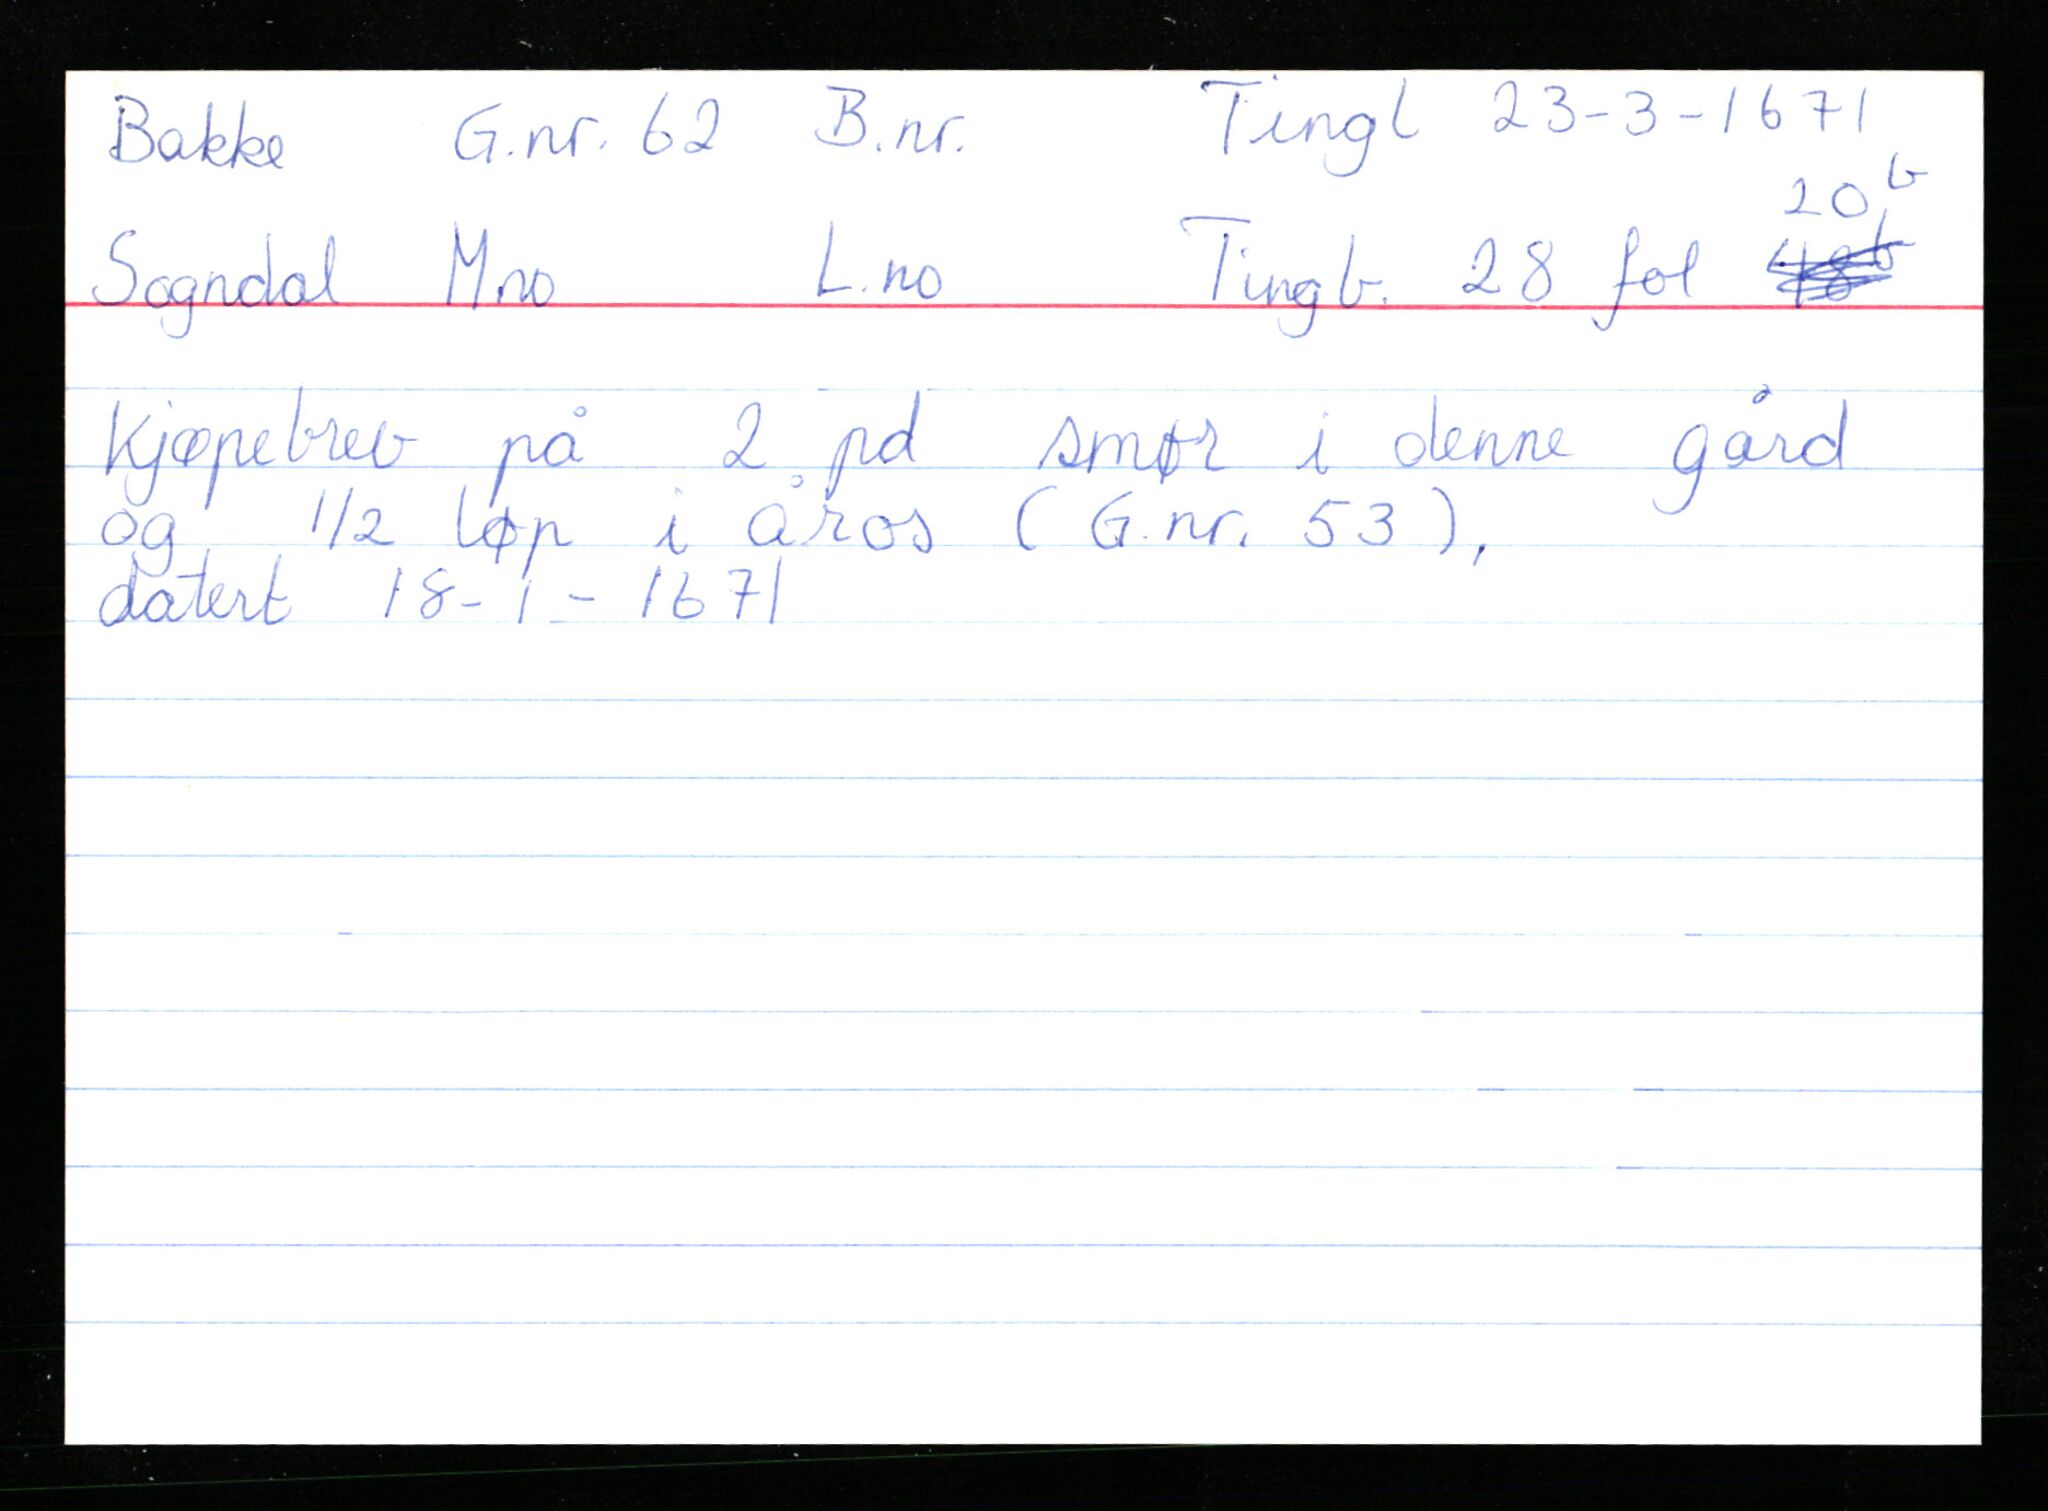 Bakke G.nr. 62 B.nr. Tingl 23-3-1671
20b
Sogndal M.no L.no Tingb. 28 fol
Kjøpebrev på 2 pd smør i denne gård
og 1/2 løp i åros (G.nr. 53),
datert 18-1-1671